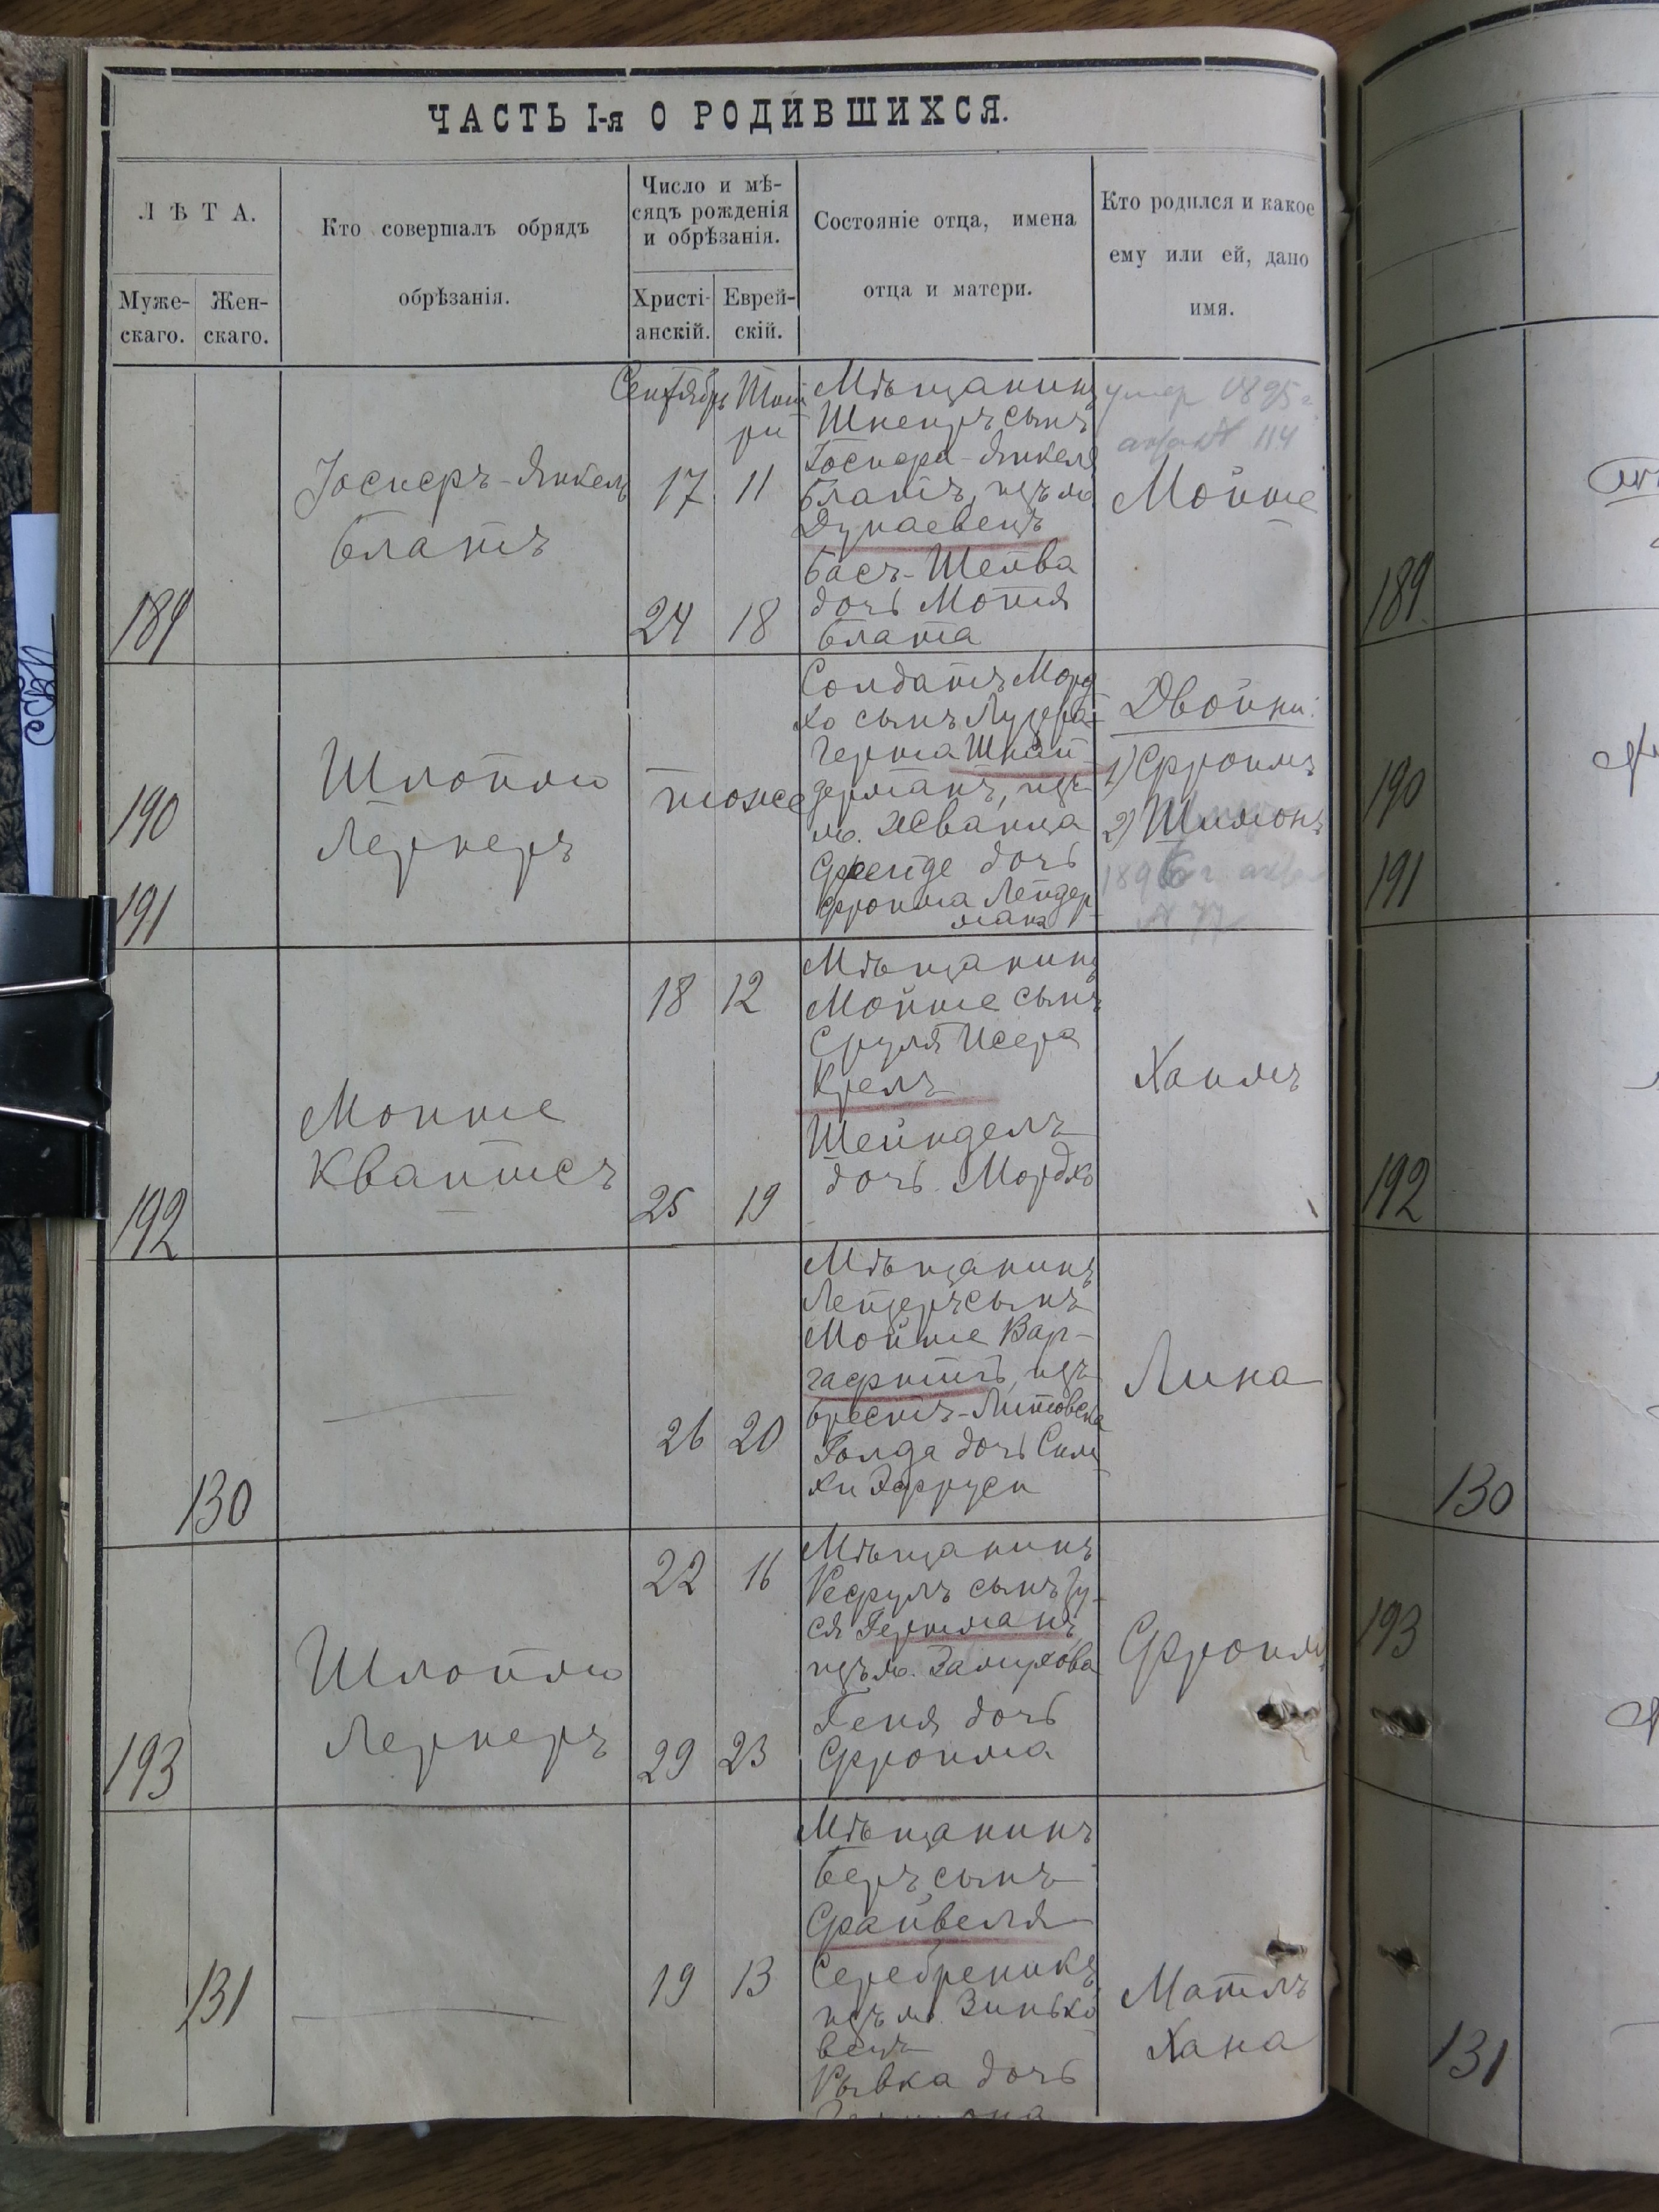 ЧАСТЬ I-я О РОДИВШИХСЯ.
ЛѢТА.
Муже-
скаго.
Жен-
скаго.
Кто совершалъ обрядъ
обрѣзанія.
Число и мѣ-
сяцъ рожденія
и обрѣзанія.
Христі-
анскій.
Еврей-
скій.
Состояніе отца, имена
отца и матери.
Кто родился и какое
ему или ей, дано
имя.
189
Іосперъ-Янкель
Блатъ
Сентябрь
Тиш
ри
17 11
24 18
Мѣщанинъ
Шнеиръ сынъ
Іоспера-Янкеля
Блатъ, изъ м.
Дунаевецъ
Бася-Шейва
дочь Мотия
Блата
умер 1895 г.
актъ № 114
Мойше
190
191
Шлоймо
Лернеръ
тоже
Солдатъ Морд
ко сынъ Лузера-
Герша Шнай-
дерманъ, изъ
м. Жванца
Фрейде дочь
Фроима Лейдер-
мана
Двойни:
1) Фроимъ
2) Шимонъ
1896 г. актъ
№ 77
192
Моише
Квантсъ
18 12
25 19
Мѣщанинъ
Мойше сынъ
Сруля Исера
Крель
Шейндель
дочь Мордк
Хаимъ
130
26 20
Мѣщанинъ
Лейзеръ сынъ
Мойше Вар-
гафтигъ, изъ
Брестъ-Литовска
Голда дочь Сим
хи
Лина
193
Шлоймо
Лернеръ
22 16
29 23
Мѣщанинъ
Рефулъ сынъ Зу-
ся Гершманъ
изъ м. Замихова
Геня дочь
Фроима
Фроимъ
131
19 13
Мѣщанинъ
Беръ сынъ
Файвеля
Серебреникъ
изъ м. Зинько
вецъ
Рывка дочь
Матль
Хана
189
190
191
192
130
193
131